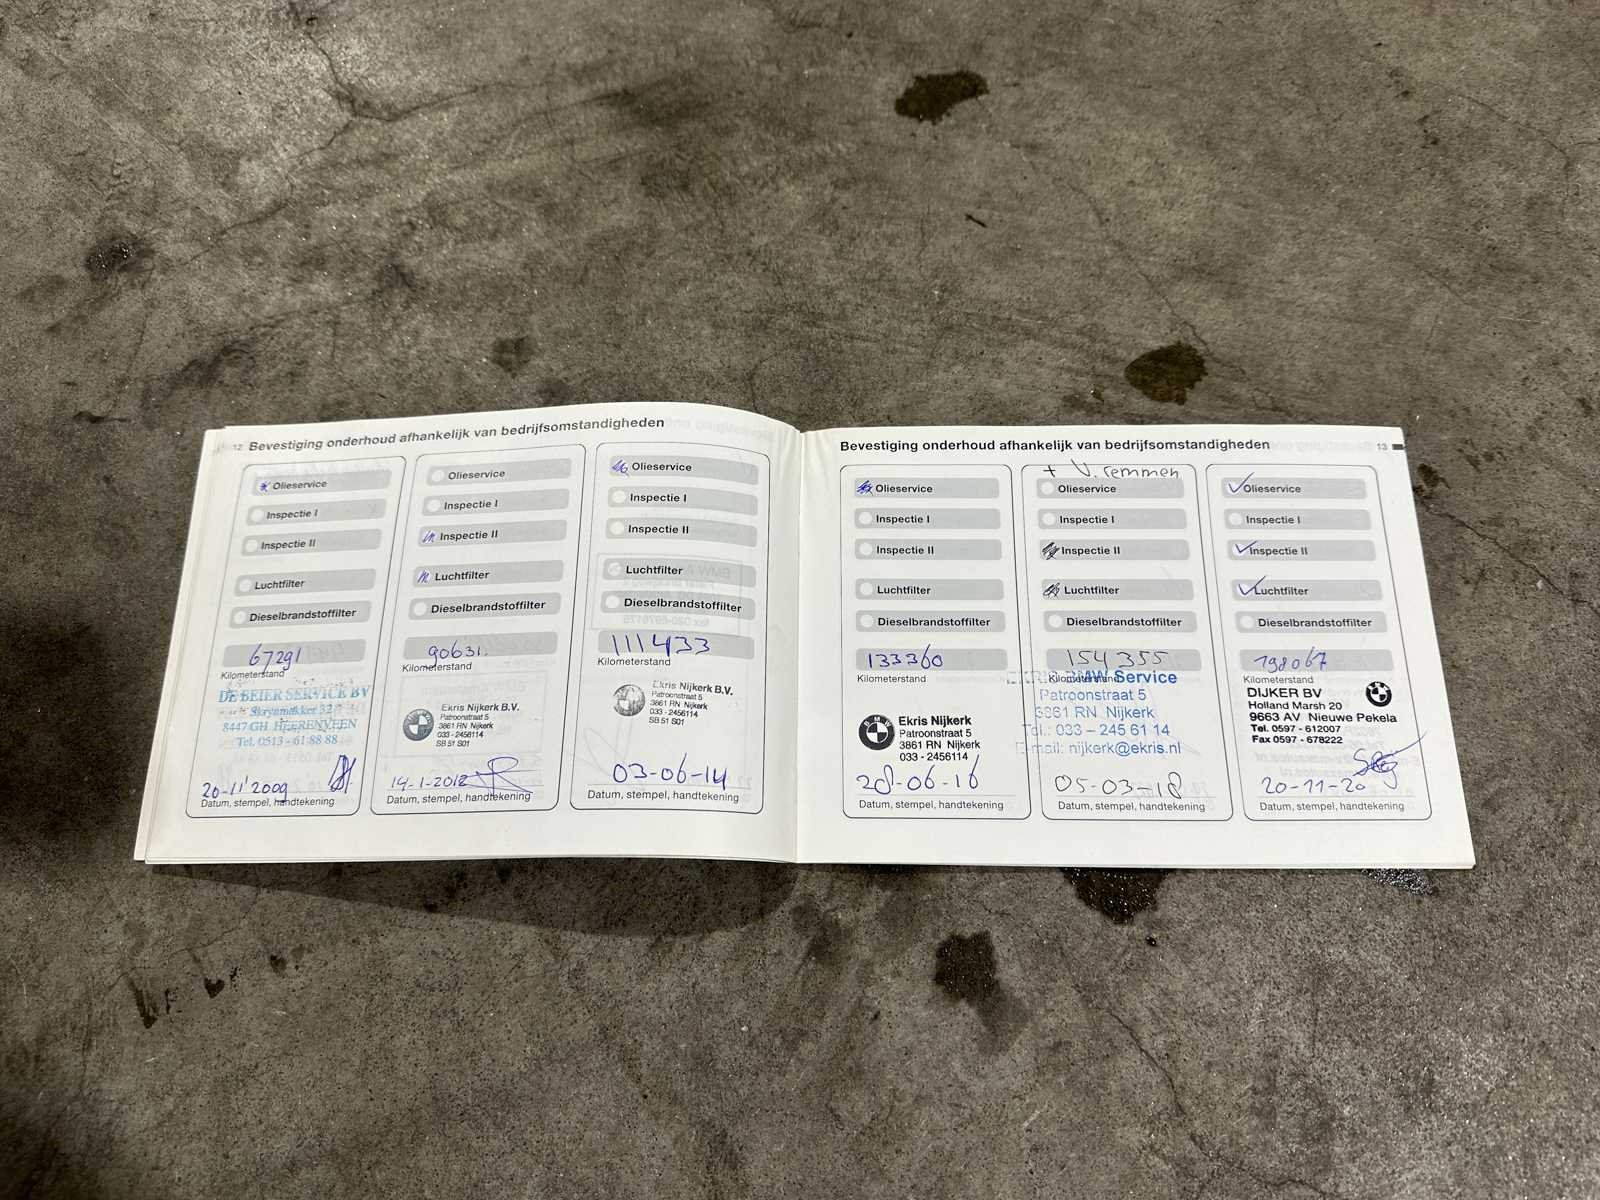 12 Bevestiging onderhoud afhankelijk van bedrijfsomstandigheden
Olieservice
Inspectie I
Inspectie II
Luchtfilter
Dieselbrandstoffilter
67291
Kilometerstand
DE BEIER SERVICE BV
8447 GH HEERENVEEN
Tel. 0513 - 61 88 88
20-11'2009
Datum, stempel, handtekening
Olieservice
Inspectie I
Inspectie II
Luchtfilter
Dieselbrandstoffilter
90631.
Kilometerstand
Ekris Nijkerk B.V.
Patroonstraat 5
3861 RN Nijkerk
033 - 2456114
SB 51 S01
14-1-2012
Datum, stempel, handtekening
Olieservice
Inspectie I
Inspectie II
Luchtfilter
Dieselbrandstoffilter
111433
Kilometerstand
Ekris Nijkerk B.V.
Patroonstraat 5
3861 RN Nijkerk
033 - 2456114
SB 51 S01
03-06-14
Datum, stempel, handtekening
Bevestiging onderhoud afhankelijk van bedrijfsomstandigheden 13
Olieservice
Inspectie I
Inspectie II
Luchtfilter
Dieselbrandstoffilter
133360
Kilometerstand
BMW
Ekris Nijkerk
Patroonstraat 5
3861 RN Nijkerk
033 - 2456114
28-06-16
Datum, stempel, handtekening
+ V. remmen
Olieservice
Inspectie I
Inspectie II
Luchtfilter
Dieselbrandstoffilter
154355
Kilometerstand
EKRIS BMW Service
Patroonstraat 5
3861 RN Nijkerk
Tel.: 033 – 245 61 14
E-mail: nijkerk@ekris.nl
05-03-18
Datum, stempel, handtekening
Olieservice
Inspectie I
Inspectie II
Luchtfilter
Dieselbrandstoffilter
198067
Kilometerstand
DIJKER BV
Holland Marsh 20
9663 AV Nieuwe Pekela
Tel. 0597 - 612007
Fax 0597 - 678222
20-11-20
Datum, stempel, handtekening